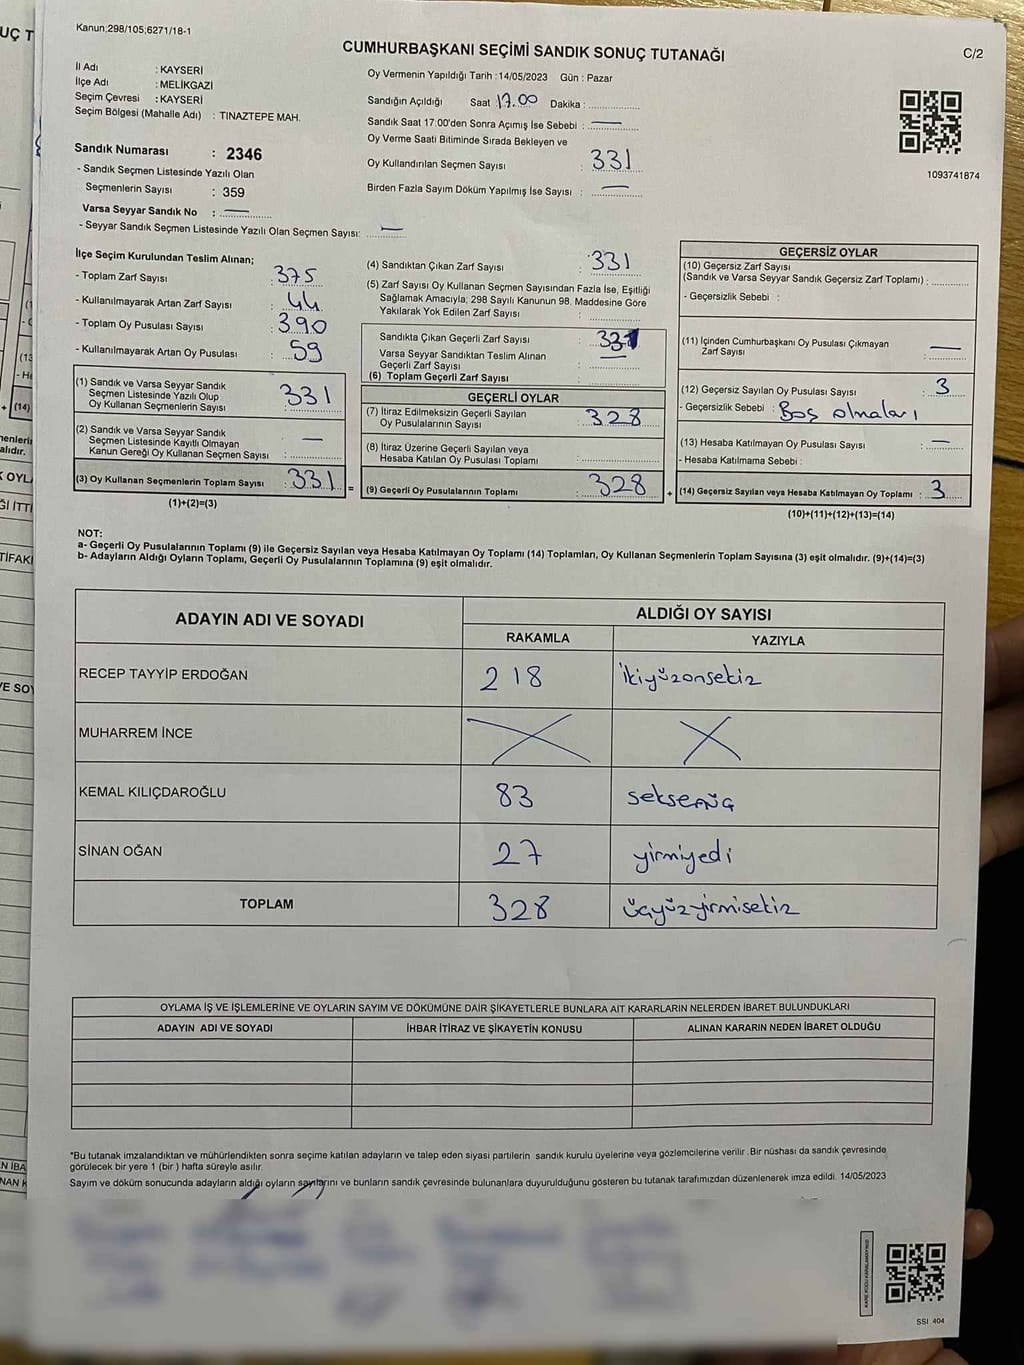 UÇ T
Kanun;298/105;6271/18-1
CUMHURBAŞKANI SEÇİMİ SANDIK SONUÇ TUTANAĞI
C/2
İl Adı : KAYSERİ
İlçe Adı : MELİKGAZİ
Seçim Çevresi : KAYSERİ
Seçim Bölgesi (Mahalle Adı) : TINAZTEPE MAH.
Oy Vermenin Yapıldığı Tarih :14/05/2023 Gün : Pazar
Sandığın Açıldığı Saat 17.00 Dakika :
Sandık Saat 17:00'den Sonra Açımış İse Sebebi : —
Oy Verme Saati Bitiminde Sırada Bekleyen ve
Oy Kullandırılan Seçmen Sayısı : 331
Birden Fazla Sayım Döküm Yapılmış İse Sayısı : —
1093741874
Sandık Numarası : 2346
- Sandık Seçmen Listesinde Yazılı Olan
Seçmenlerin Sayısı : 359
Varsa Seyyar Sandık No : —
- Seyyar Sandık Seçmen Listesinde Yazılı Olan Seçmen Sayısı: —
İlçe Seçim Kurulundan Teslim Alınan;
- Toplam Zarf Sayısı : 375
- Kullanılmayarak Artan Zarf Sayısı : 44
- Toplam Oy Pusulası Sayısı : 390
- Kullanılmayarak Artan Oy Pusulası : 59
(1) Sandık ve Varsa Seyyar Sandık
Seçmen Listesinde Yazılı Olup
Oy Kullanan Seçmenlerin Sayısı : 331
(2) Sandık ve Varsa Seyyar Sandık
Seçmen Listesinde Kayıtlı Olmayan
Kanun Gereği Oy Kullanan Seçmen Sayısı : —
(3) Oy Kullanan Seçmenlerin Toplam Sayısı : 331 =
(1)+(2)=(3)
(4) Sandıktan Çıkan Zarf Sayısı : 331
(5) Zarf Sayısı Oy Kullanan Seçmen Sayısından Fazla İse, Eşitliği
Sağlamak Amacıyla; 298 Sayılı Kanunun 98. Maddesine Göre
Yakılarak Yok Edilen Zarf Sayısı :
Sandıkta Çıkan Geçerli Zarf Sayısı : 331
Varsa Seyyar Sandıktan Teslim Alınan
Geçerli Zarf Sayısı : —
(6) Toplam Geçerli Zarf Sayısı :
GEÇERLİ OYLAR
(7) İtiraz Edilmeksizin Geçerli Sayılan
Oy Pusulalarının Sayısı : 328
(8) İtiraz Üzerine Geçerli Sayılan veya
Hesaba Katılan Oy Pusulası Toplamı :
(9) Geçerli Oy Pusulalarının Toplamı : 328 +
GEÇERSİZ OYLAR
(10) Geçersiz Zarf Sayısı
(Sandık ve Varsa Seyyar Sandık Geçersiz Zarf Toplamı) :
- Geçersizlik Sebebi :
(11) İçinden Cumhurbaşkanı Oy Pusulası Çıkmayan
Zarf Sayısı : —
(12) Geçersiz Sayılan Oy Pusulası Sayısı : 3
- Geçersizlik Sebebi : Boş olmaları
(13) Hesaba Katılmayan Oy Pusulası Sayısı : —
- Hesaba Katılmama Sebebi :
(14) Geçersiz Sayılan veya Hesaba Katılmayan Oy Toplamı : 3
(10)+(11)+(12)+(13)=(14)
NOT:
a- Geçerli Oy Pusulalarının Toplamı (9) ile Geçersiz Sayılan veya Hesaba Katılmayan Oy Toplamı (14) Toplamları, Oy Kullanan Seçmenlerin Toplam Sayısına (3) eşit olmalıdır. (9)+(14)=(3)
b- Adayların Aldığı Oyların Toplamı, Geçerli Oy Pusulalarının Toplamına (9) eşit olmalıdır.
ADAYIN ADI VE SOYADI
ALDIĞI OY SAYISI
RAKAMLA YAZIYLA
RECEP TAYYİP ERDOĞAN 218 ikiyüzonsekiz
MUHARREM İNCE X X
KEMAL KILIÇDAROĞLU 83 seksenüç
SİNAN OĞAN 27 yirmiyedi
TOPLAM 328 üçyüzyirmisekiz
OYLAMA İŞ VE İŞLEMLERİNE VE OYLARIN SAYIM VE DÖKÜMÜNE DAİR ŞİKAYETLERLE BUNLARA AİT KARARLARIN NELERDEN İBARET BULUNDUKLARI
ADAYIN ADI VE SOYADI İHBAR İTİRAZ VE ŞİKAYETİN KONUSU ALINAN KARARIN NEDEN İBARET OLDUĞU
*Bu tutanak imzalandıktan ve mühürlendikten sonra seçime katılan adayların ve talep eden siyasi partilerin sandık kurulu üyelerine veya gözlemcilerine verilir .Bir nüshası da sandık çevresinde
görülecek bir yere 1 (bir ) hafta süreyle asılır.
Sayım ve döküm sonucunda adayların aldığı oyların sayılarını ve bunların sandık çevresinde bulunanlara duyurulduğunu gösteren bu tutanak tarafımızdan düzenlenerek imza edildi. 14/05/2023
SSI 404